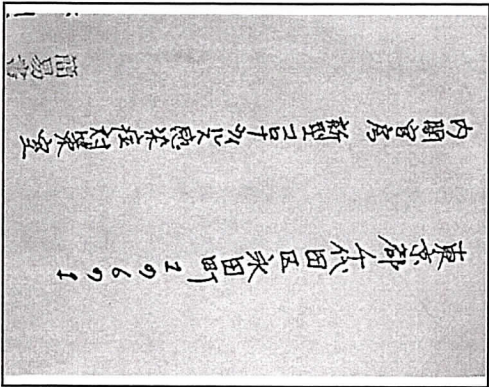 東京都千代田区永田町1の6の1
内閣官房 新型コロナウィルス感染症対策室
簡易書